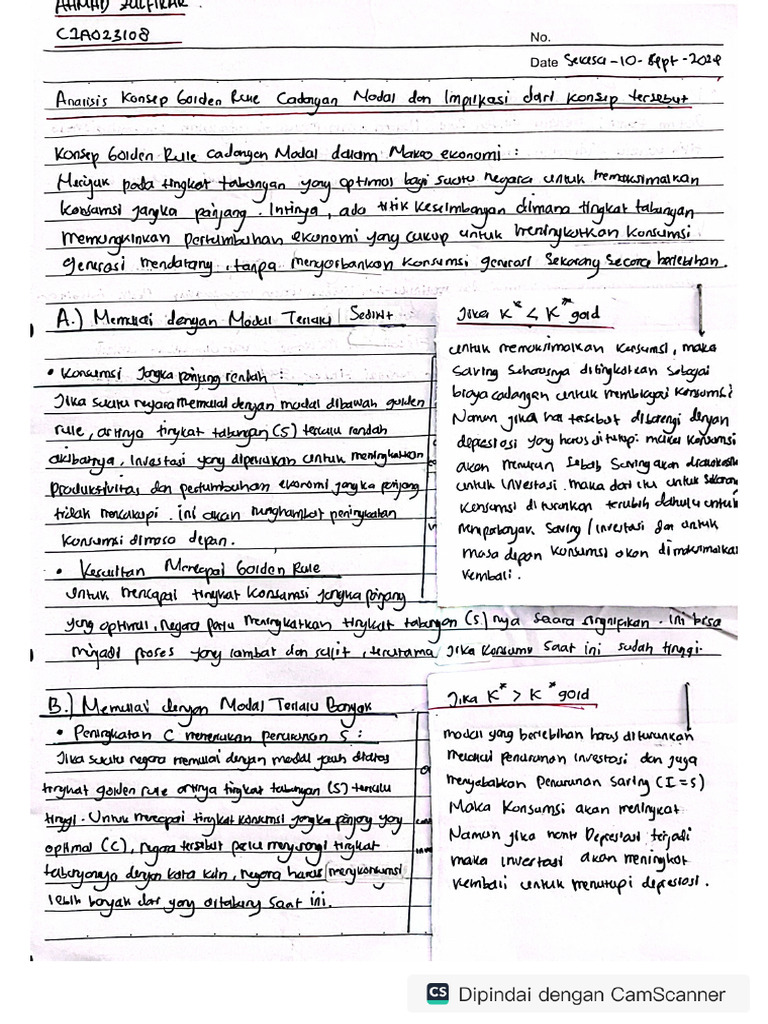 AHMAD ZULFIKAR.
C1A023108
No.
Date Selasa-10-Sept-2024
Analisis Konsep Golden Rule Cadangan Modal dan Implikasi dari Konsep tersebut
Konsep Golden Rule Cadangan Modal dalam Makro ekonomi :
Merujuk pada tingkat tabungan yang optimal bagi suatu negara untuk memaksimalkan
konsumsi jangka panjang. Intinya, ada titik keseimbangan dimana tingkat tabungan
memungkinkan pertumbuhan ekonomi yang cukup untuk meningkatkan konsumsi
generasi mendatang, tanpa mengorbankan konsumsi generasi sekarang secara berlebihan.
A.) Memulai dengan Modal Terlalu Sedikit
• Konsumsi Jangka panjang rendah :
Jika suatu negara memulai dengan modal dibawah golden
rule, artinya tingkat tabungan (S) terlalu rendah
akibatnya, Investasi yang diperlukan untuk meningkatkan
Produktivitas dan pertumbuhan ekonomi jangka panjang
tidak mencukupi. ini akan menghambat peningkatan
konsumsi dimasa depan.
• Kesulitan Mencapai Golden Rule
untuk mencapai tingkat konsumsi jangka panjang
yang optimal, negara perlu meningkatkan tingkat tabungan (S) nya secara signifikan. Ini bisa
menjadi proses yang lambat dan sulit, terutama jika konsumsi saat ini sudah tinggi.
Jika K* < K* gold
untuk memaksimalkan konsumsi, maka
saving seharusnya ditingkatkan sebagai
biaya cadangan untuk membiayai konsumsi
Namun jika hal tersebut dibarengi dengan
depresiasi yang harus ditutupi maka konsumsi
akan menurun sebab saving akan
untuk investasi. maka dari itu untuk sekarang
konsumsi diturunkan terlebih dahulu untuk
memperbanyak saving/investasi dan untuk
masa depan konsumsi akan dimaksimalkan
kembali.
B.) Memulai dengan Modal Terlalu Banyak
• Peningkatan C memerlukan penurunan S :
Jika suatu negara memulai dengan modal jauh diatas
tingkat golden rule artinya tingkat tabungan (S) terlalu
tinggi. Untuk mencapai tingkat konsumsi jangka panjang yang
optimal (C), negara tersebut perlu mengurangi tingkat
tabungannya dengan kata lain, negara harus mengkonsumsi
lebih banyak dari yang ditabung saat ini.
Jika K* > K* gold
modal yang berlebihan harus diturunkan
melalui penurunan investasi dan juga
menyebabkan penurunan saving (I=S)
Maka Konsumsi akan meningkat
Namun jika nanti Depresiasi terjadi
maka investasi akan meningkat
kembali untuk menutupi depresiasi.
CS Dipindai dengan CamScanner